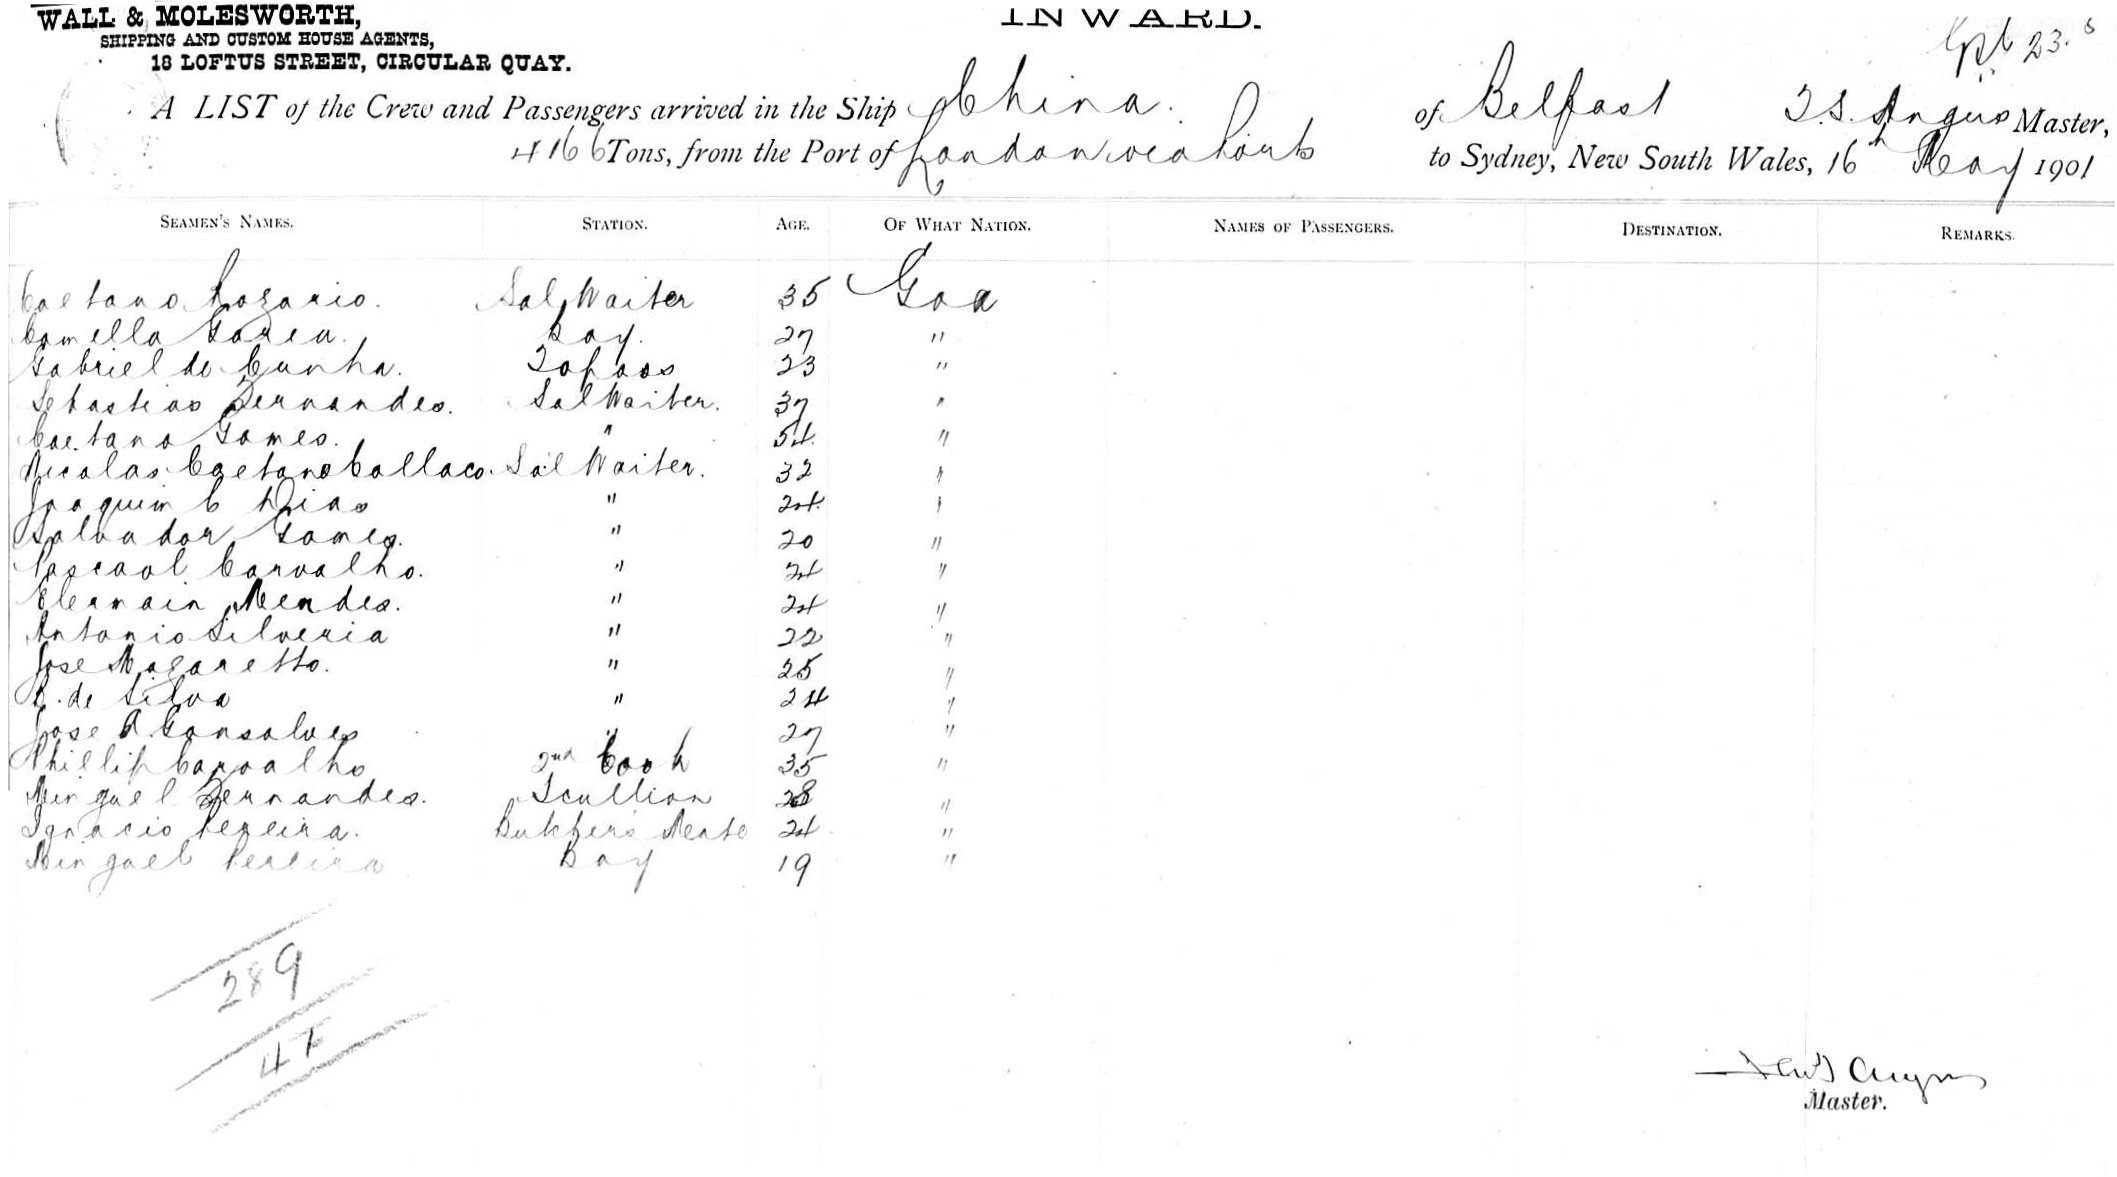 WALL & MOLESWORTH,
SHIPPING AND CUSTOM HOUSE AGENTS,
18 LOFTUS STREET, CIRCULAR QUAY.
INWARD.
23.
A LIST of the Crew and Passengers arrived in the Ship China. of Belfast T.S. Angus Master,
4166 Tons, from the Port of London via Ports to Sydney, New South Wales, 16th May 1901
SEAMEN'S NAMES. STATION. AGE. OF WHAT NATION. NAMES OF PASSENGERS. DESTINATION. REMARKS.
Caetano Rozario. Sal Waiter 35 Goa
Camella Boy. 27 "
Gabriel de Cunha. Topaos 23 "
Sebastiao Fernandes. Sal Waiter. 37 "
Caetano Gomes. " 54. "
Nicolas Caetano Collaco. Sal Waiter. 32 "
Joaquim C Dias " 24. "
Salvador Gomes. " 20 "
Pascaol Carvalho. " 24 "
Mendes. " 24 "
Antonio Silveria " 22 "
Jose Nazaretto. " 25 "
de Silva " 24 "
Jose A. Gonsalves " 27 "
Phillip Carvalho 2nd Cook 35 "
Minguel Fernandes. Scullion 28 "
Ignacio Pereira. Butcher's Mate 24 "
Minguel Pereira Boy 19 "
289
47
Angus
Master.